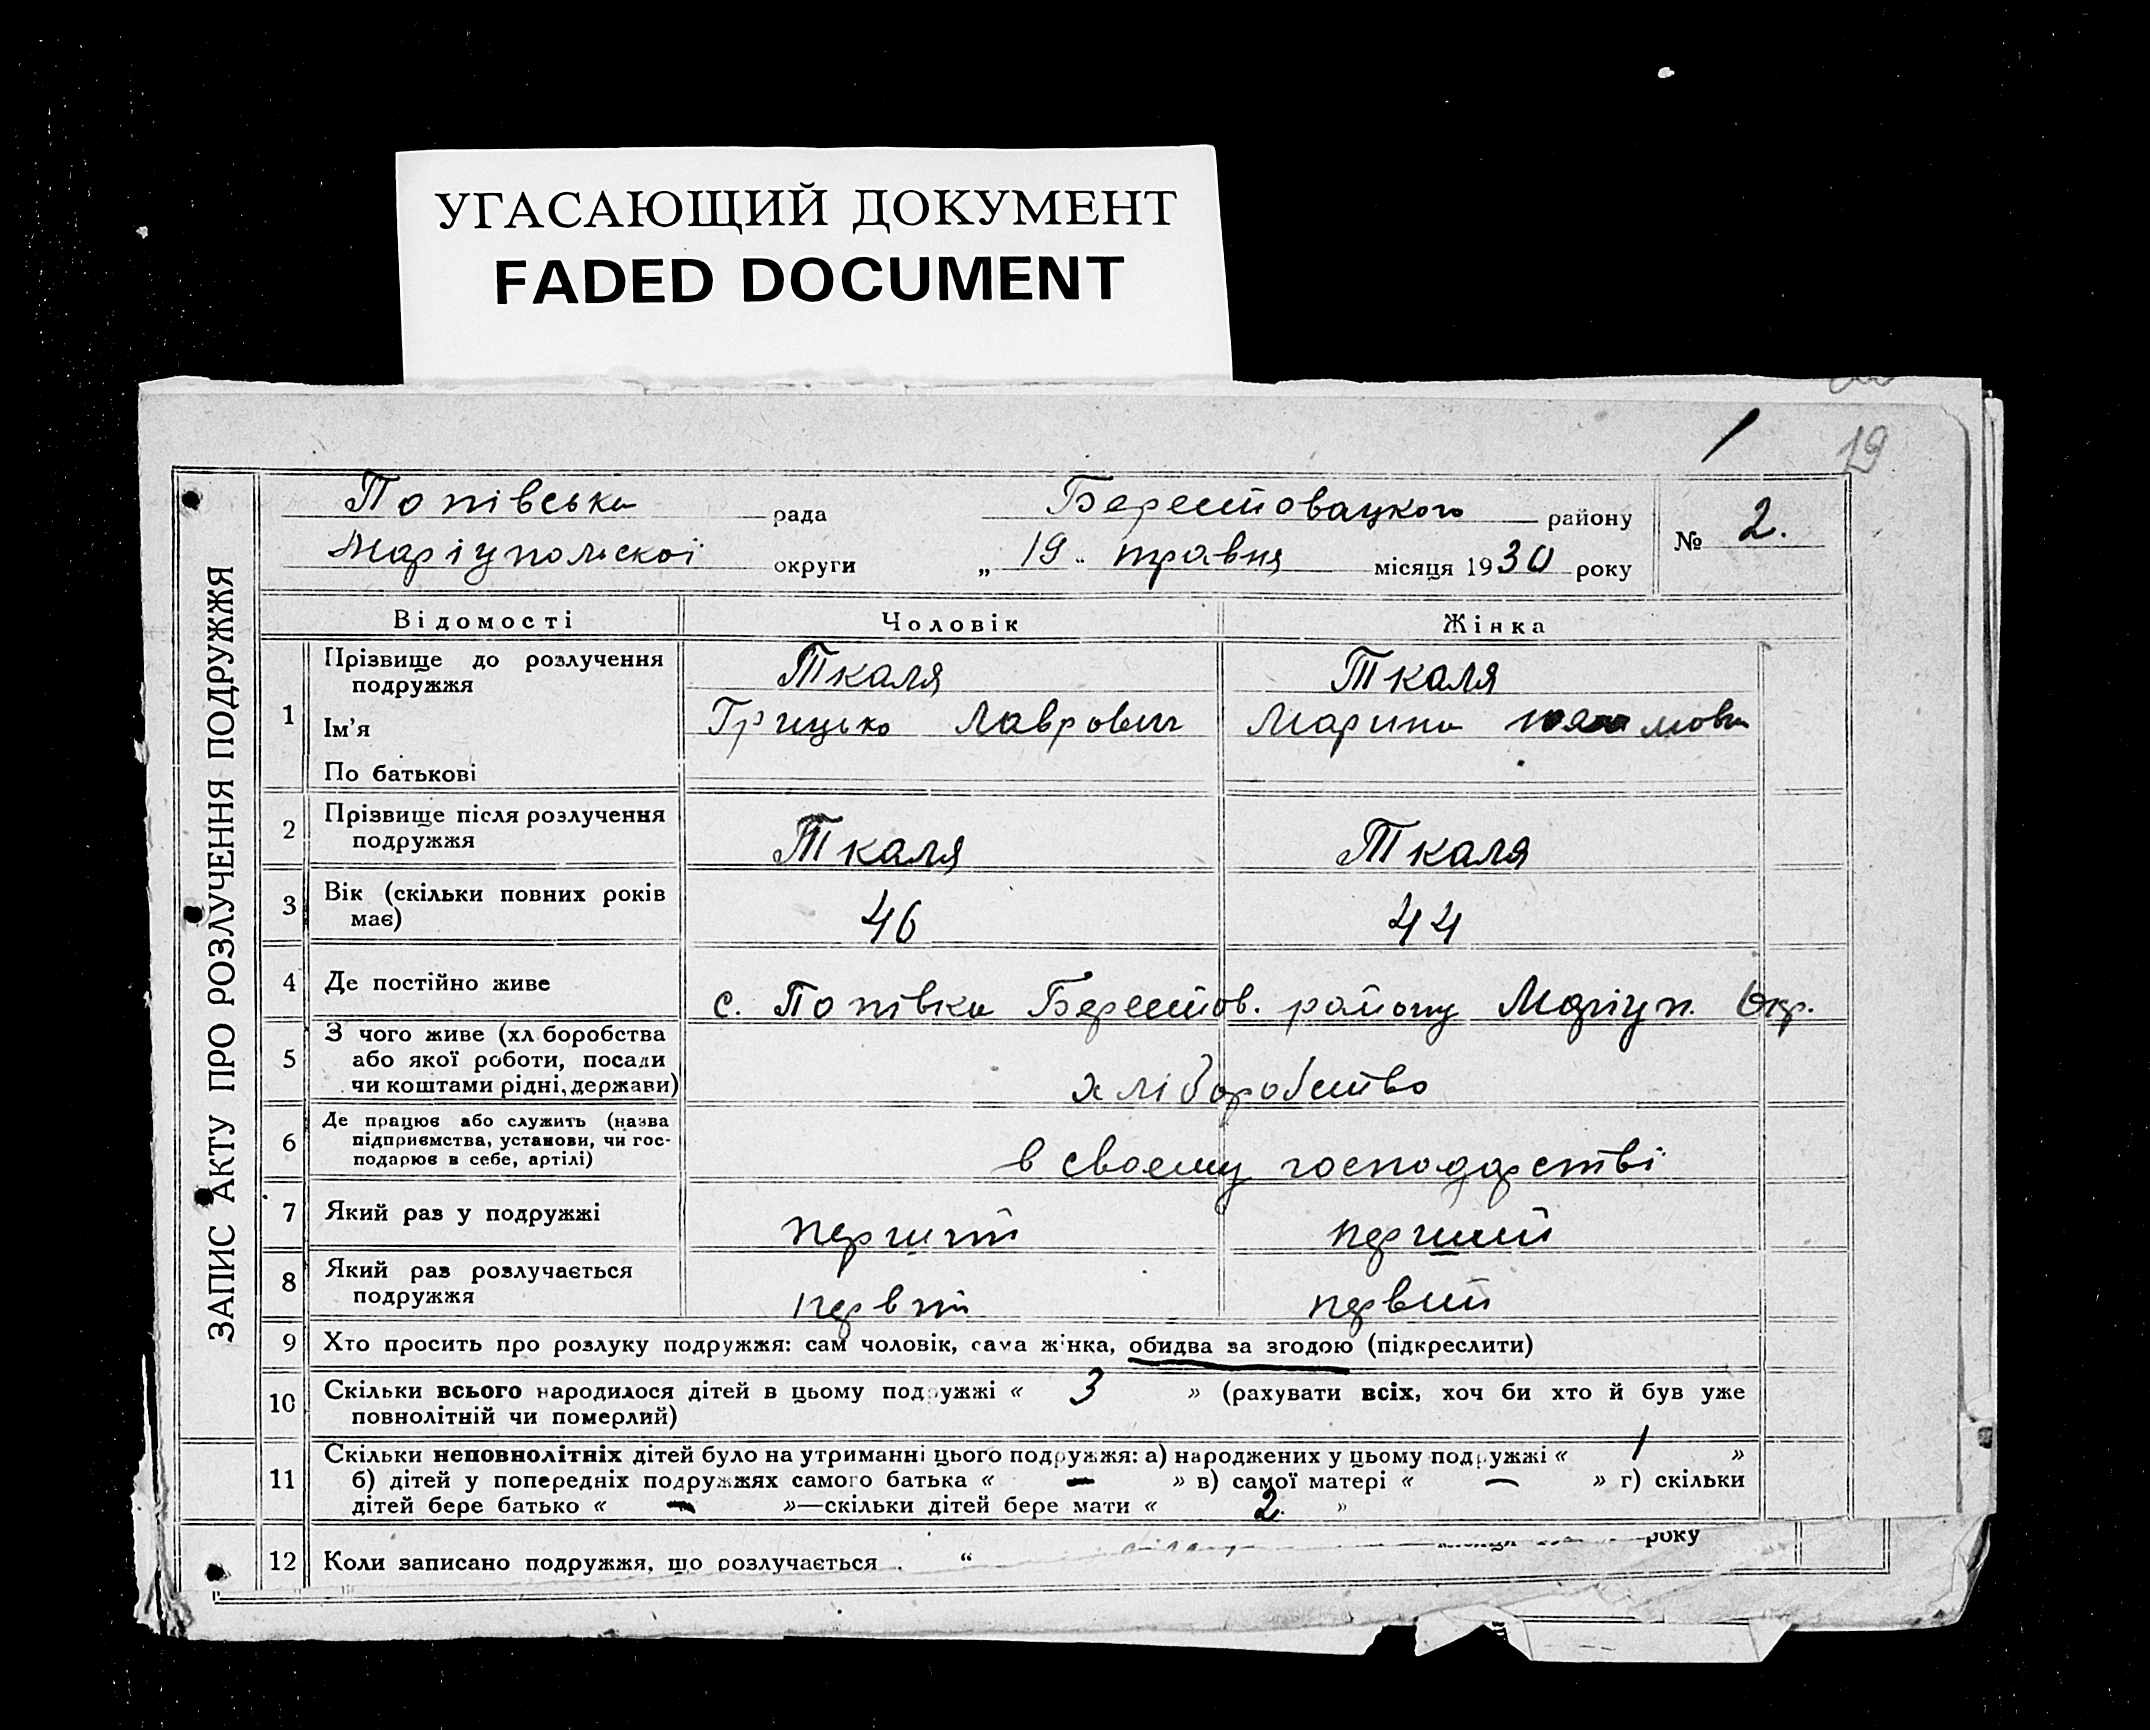 УГАСАЮЩИЙ ДОКУМЕНТ
FADED DOCUMENT
1
19
ЗАПИС АКТУ ПРО РОЗЛУЧЕННЯ ПОДРУЖЖЯ
Попівська рада Берестовацкого району
Маріупольскої округи „ 19 " травня місяця 1930 року
№ 2.
Відомості Чоловік Жінка
1 Прізвище до розлучення Ткаля Ткаля
подружжя
Ім'я Грицько Лаврович Марина
По батькові
2 Прізвище після розлучення Ткаля Ткаля
подружжя
3 Вік (скільки повних років 46 44
має)
4 Де постійно живе с. Попівка Берестов. району Маріуп. Окр.
5 З чого живе (хл боробства
або якої роботи, посади
чи коштами рідні, держави) хліборобство
6 Де працює або служить (назва
підприємства, установи, чи гос-
подарює в себе, артілі) в своєму господарстві
7 Який раз у подружжі перший перший
8 Який раз розлучається первий первий
подружжя
9 Хто просить про розлуку подружжя: сам чоловік, сама жінка, обидва за згодою (підкреслити)
10 Скільки всього народилося дітей в цьому подружжі « 3 » (рахувати всіх, хоч би хто й був уже
повнолітній чи померлий)
11 Скільки неповнолітніх дітей було на утриманні цього подружжя: а) народжених у цьому подружжі « 1 »
б) дітей у попередніх подружжях самого батька « — » в) самої матері « — » г) скільки
дітей бере батько « — »—скільки дітей бере мати « 2. »
12 Коли записано подружжя, що розлучається . “ року